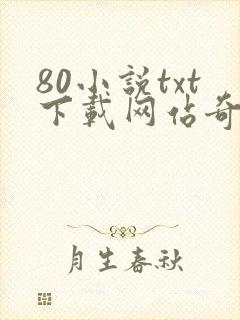 80小説txt
下載网佔奇
月生春秋